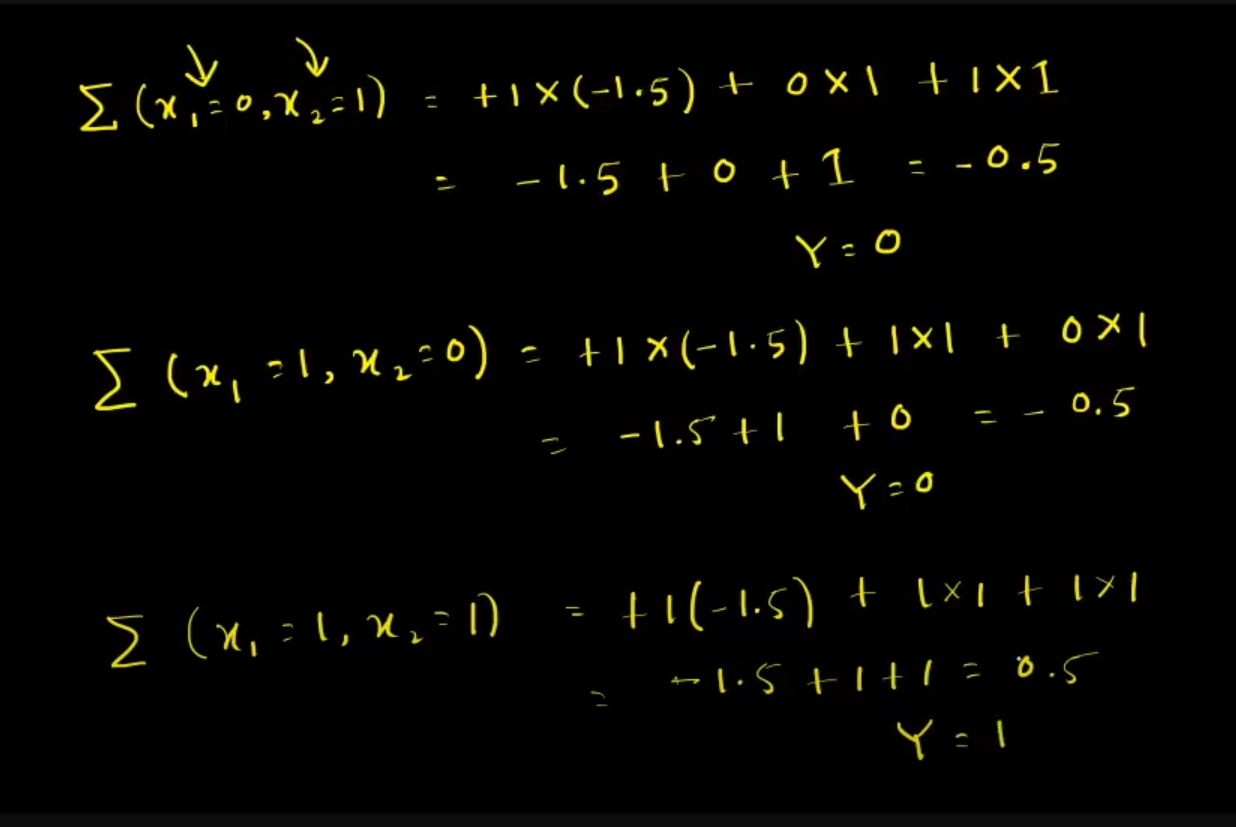 Σ (x₁=0, x₂=1) = +1×(-1.5) + 0×1 + 1×1
= -1.5 + 0 + 1 = -0.5
Y=0
Σ (x₁=1, x₂=0) = +1×(-1.5) + 1×1 + 0×1
= -1.5+1 +0 = -0.5
Y=0
Σ (x₁=1, x₂=1) = +1(-1.5) + 1×1 + 1×1
= -1.5+1+1 = 0.5
Y=1